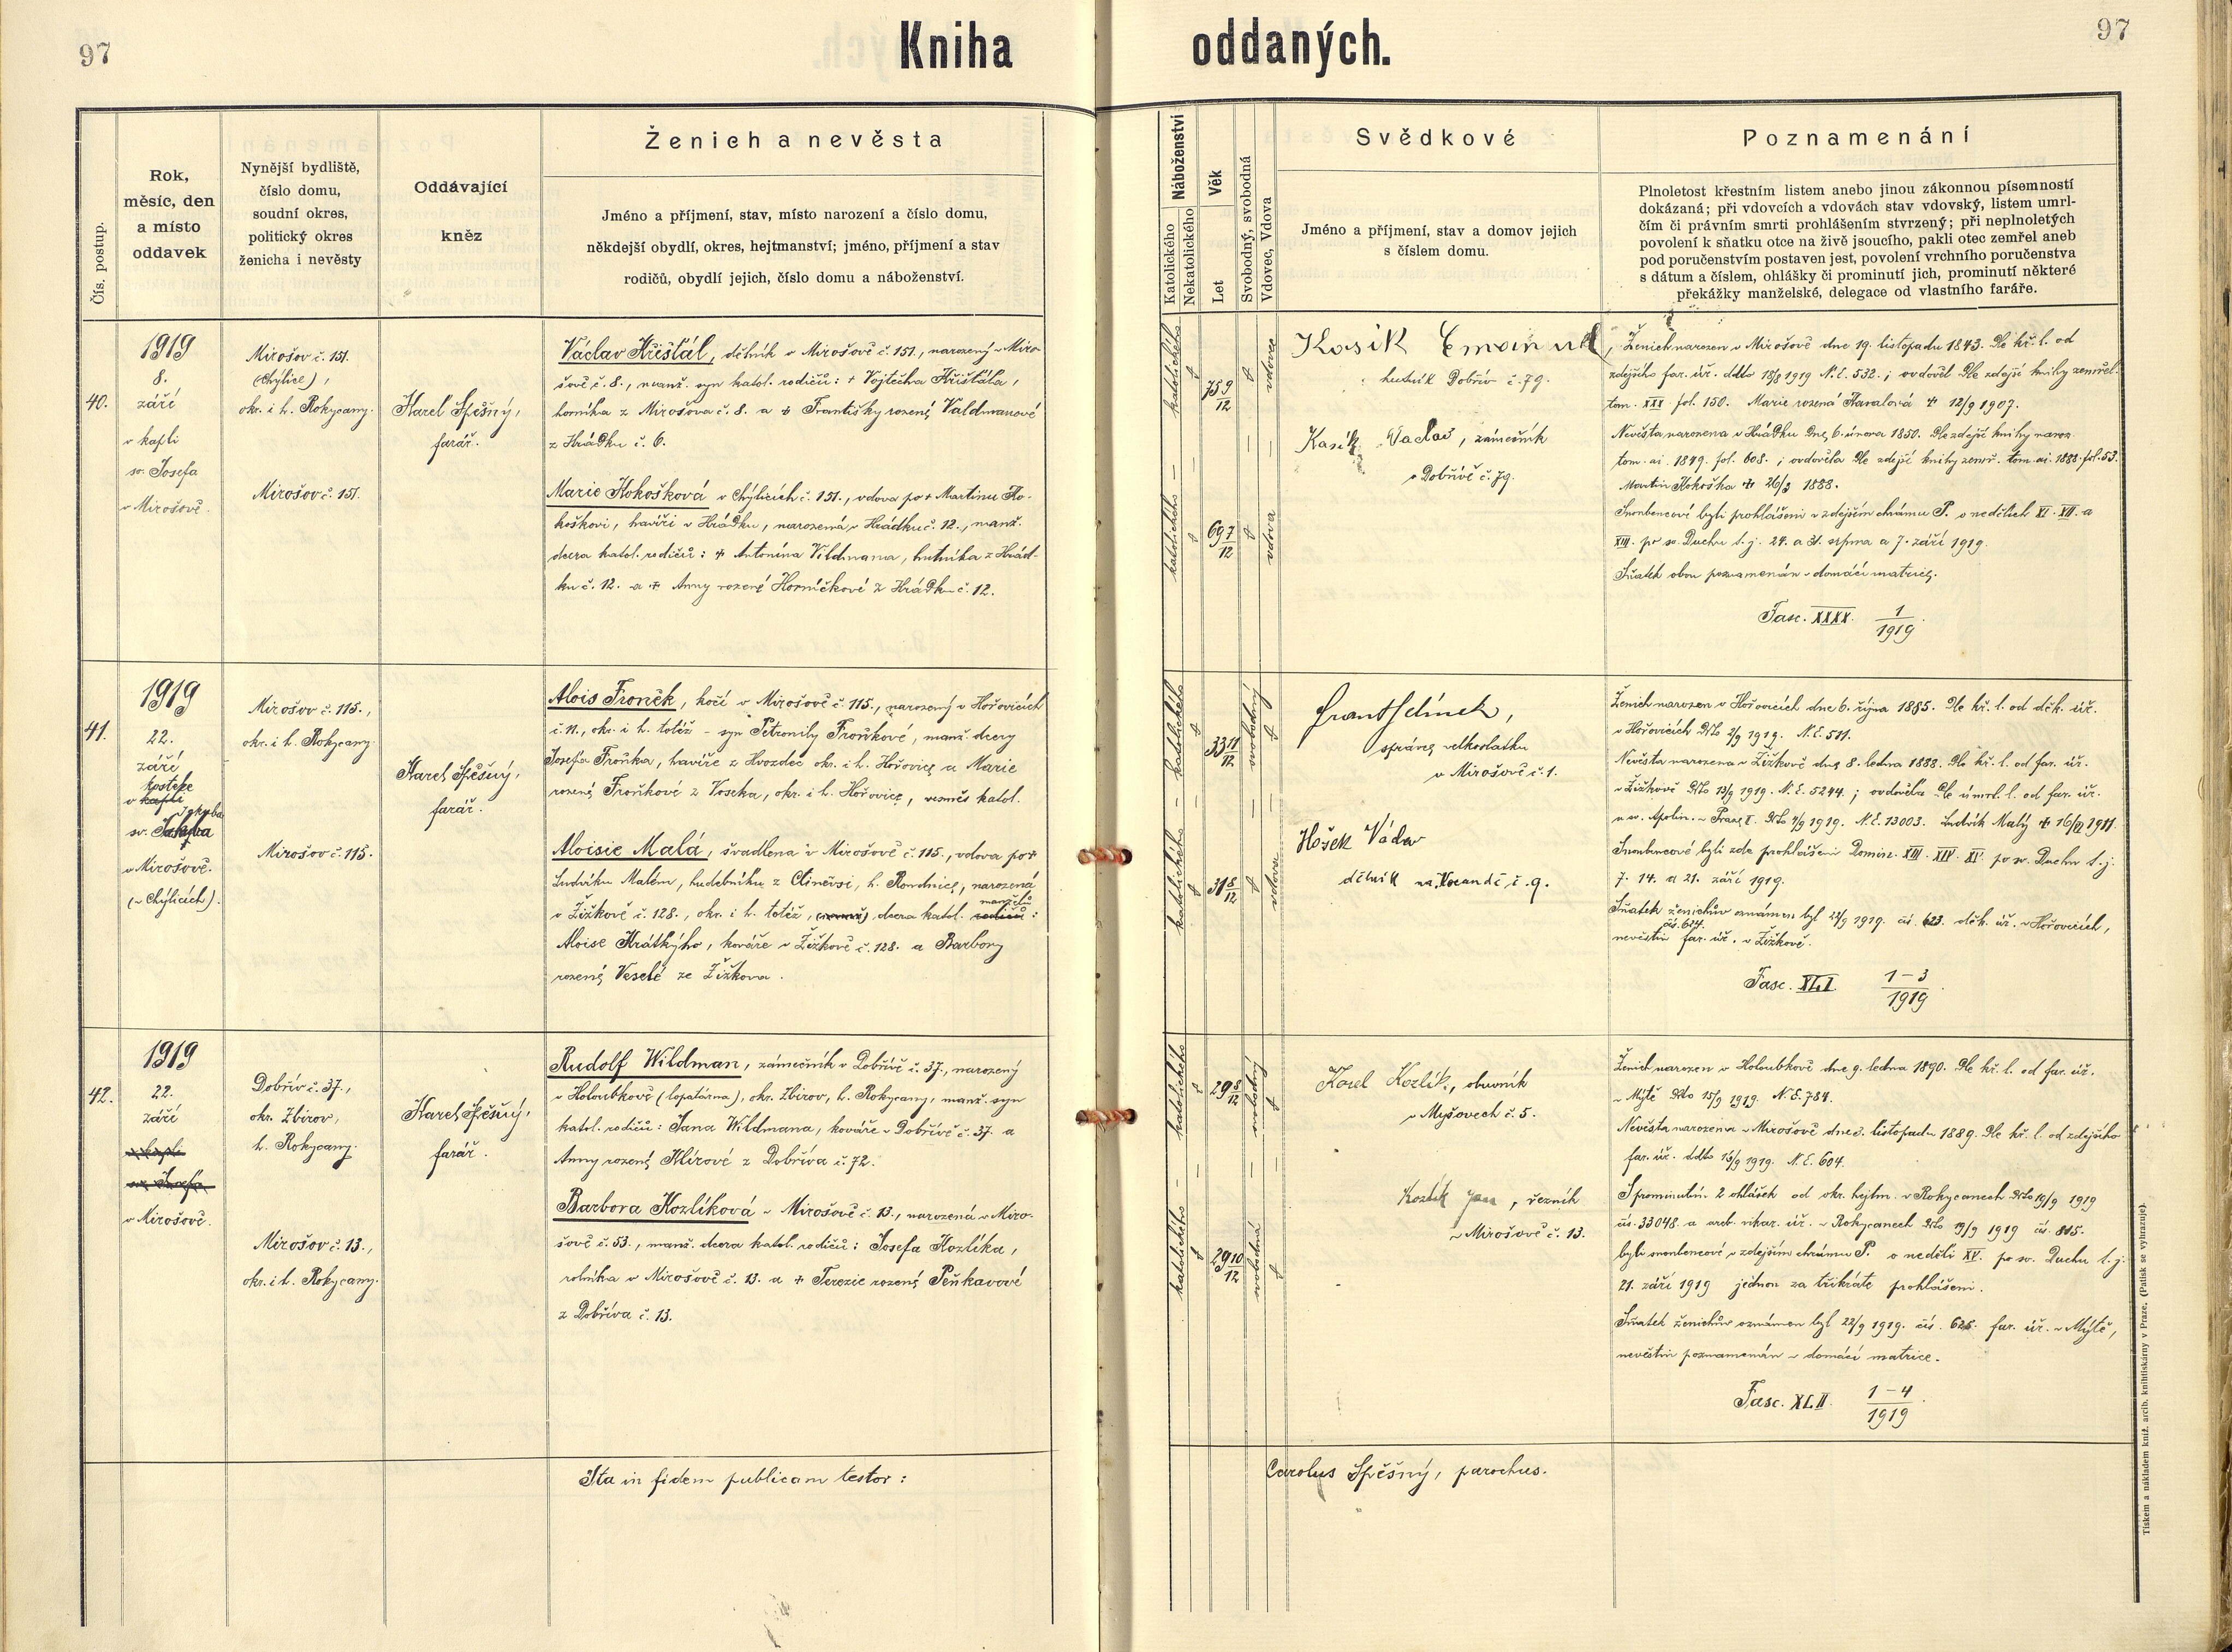 97
Kniha
oddaných.
97
Čís. postup.
Rok,
měsíc, den
a místo
oddavek
Nynější bydliště,
číslo domu,
soudní okres,
politický okres
ženicha i nevěsty
Oddávající
kněz
Ženich a nevěsta
Jméno a příjmení, stav, místo narození a číslo domu,
někdejší obydlí, okres, hejtmanství; jméno, příjmení a stav
rodičů, obydlí jejich, číslo domu a náboženství.
Náboženství
Katolického
Nekatolického
Věk
Let
Svobodný, svobodná
Vdovec, Vdova
Svědkové
Jméno a příjmení, stav a domov jejich
s číslem domu.
Poznamenání
Plnoletost křestním listem anebo jinou zákonnou písemností
dokázaná; při vdovcích a vdovách stav vdovský, listem umrl-
čím či právním smrti prohlášením stvrzený; při neplnoletých
povolení k sňatku otce na živě jsoucího, pakli otec zemřel aneb
pod poručenstvím postaven jest, povolení vrchního poručenstva
s dátum a číslem, ohlášky či prominutí jich, prominutí některé
překážky manželské, delegace od vlastního faráře.
40.
1919
8.
září
v kapli
sv. Josefa
v Mirošově.
Mirošov č. 151.
(Chylice),
okr. i h. Rokycany.
Mirošov č. 151.
Karel Spěšný,
farář.
Václav Křištál, dělník v Mirošově č. 151., narozený v Miro-
šově č. 8., manž. syn katol. rodičů: + Vojtěcha Křištála,
horníka z Mirošova č. 8. a + Františky rozené Valdmanové
z Hrádku č. 6.
Marie Kokošková v Chýlicích č. 151., vdova po + Martinu Ko-
koškovi, havíři v Hrádku, narozená v Hrádku č. 12., manž.
dcera katol. rodičů: + Antonína Vildmana, hutníka z Hrád-
ku č. 12. a + Anny rozené Horníčkové z Hrádku č. 12.
katolického
75 9/12
vdovec
katolického
69 7/12
vdova
Kasík Emanuel,
hutník Dobřív č. 79.
Kasík Vaclav, zámečník
v Dobřívě č. 79.
Ženich narozen v Mirošově dne 19. listopadu 1843. Dle kř. l. od
zdejšího far. úř. ddto 18/8 1919 N. E. 532.; ovdověl dle zdejší knihy zemřel.
tom. XXI fol. 150. Marie rozená Havalová + 12/9 1907.
Nevěsta narozena v Hrádku dne 6. února 1850. Dle zdejší knihy naroz.
tom. ai. 1849. fol. 608.; ovdověla dle zdejší knihy zemř. tom. ai. 1888. fol. 53.
Martin Kokoška + 26/3 1888.
Snoubencové byli prohlášeni v zdejším chrámu P. o nedělích XI. XII. a
XIII. po sv. Duchu t. j. 24. a 31. srpna a 7. září 1919.
Sňatek obou poznamenán v domácí matrice.
Fasc. XXXX. 1/1919
41.
1919
22.
září
kostele
v kapli
Jakuba
sv.
v Mirošově.
(v Chýlicích).
Mirošov č. 115.,
okr. i h. Rokycany
Mirošov č. 115.
Karel Spěšný,
farář.
Alois Froněk, kočí v Mirošově č. 115., narozený v Hořovicích
č. 11., okr. i h. totéž – syn Petronily Froňkové, manž. dcery
Josefa Froňka, havíře z Hvozdec okr. i h. Hořovice a Marie
rozené Froňkové z Voseka, okr. i h. Hořovice, vesměs katol.
Aloisie Malá, švadlena v Mirošově č. 115., vdova po +
Ludvíku Malém, hudebníku z Ctiněvsi, h. Roudnice, narozená
manželů
v Žižkově č. 128., okr. i h. totéž, (manž) dcera katol. rodičů:
Aloise Krátkýho, kováře v Žižkově č. 128. a Barbory
rozené Veselé ze Žižkova.
katolického
33 11/12
svobodný
katolického
31 8/12
vdova
správce velkostatku
v Mirošově č. 1.
Hošek Václav
dělník na Vocandě č. 9.
Ženich narozen v Hořovicích dne 6. října 1885. Dle kř. l. od děk. úř.
v Hořovicích ddto 2/9 1919. N. E. 511.
Nevěsta narozena v Žižkově dne 8. ledna 1888. Dle kř. l. od far. úř.
v Žižkově ddto 13/9 1919. N. E. 5244.; ovdověla dle úmrl. l. od far. úř.
u sv. Apolin. v Praze I. ddto 4/9 1919. N. E. 13003. Ludvík Malý + 16/VI 1911.
Snoubencové byli zde prohlášeni Domin. XIII. XIV. XV. po sv. Duchu t. j.
7. 14. a 21. září 1919.
Sňatek ženichův oznámen byl 22/9 1919. čís. 623. děk. úř. v Hořovicích,
čís. 624.
nevěstin far. úř. v Žižkově.
Fasc. XLI. 1-3/1919
42.
1919
22.
září
v kapli
sv. Josefa
v Mirošově.
Dobřív č. 37.,
okr. Zbirov,
h. Rokycany.
Mirošov č. 13.,
okr. i h. Rokycany.
Karel Spěšný,
farář.
Rudolf Wildman, zámečník v Dobřívě č. 37., narozený
v Holoubkově (lopatárna), okr. Zbirov, h. Rokycany, manž. syn
katol. rodičů: Jana Wildmana, kováře v Dobřívě č. 37. a
Anny rozené Klírové z Dobříva č. 72.
Barbora Kozlíková v Mirošově č. 13., narozená v Miro-
šově č. 53., manž. dcera katol. rodičů: Josefa Kozlíka,
rolníka v Mirošově č. 13. a + Terezie rozené Peňkavové
z Dobříva č. 13.
katolického
29 8/12
svobodný
katolického
29 10/12
svobodná
Karel Kozlík, obuvník
v Myšovech č. 5.
Kozlík Jan, řezník
v Mirošově č. 13.
Ženich narozen v Holoubkově dne 9. ledna 1890. Dle kř. l. od far. úř.
v Mýtě ddto 15/9 1919. N. E. 784.
Nevěsta narozena v Mirošově dne 3. listopadu 1889. Dle kř. l. od zdejšího
far. úř. ddto 15/9 1919. N. E. 604.
S prominutím 2 ohlášek od okr. hejtm. v Rokycanech ddto 19/9 1919
čís. 33048 a arcib. vikar. úř. v Rokycanech ddto 19/9 1919 čís. 815.
byli snoubencové v zdejším chrámu P. o neděli XV. po sv. Duchu t. j.
21. září 1919 jednou za třikráte prohlášeni.
Sňatek ženichův oznámen byl 22/9 1919. čís. 626. far. úř. v Mýtě,
nevěstin poznamenán v domácí matrice.
Fasc. XLII. 1-4/1919
Ita in fidem publicam testor:
Carolus Spěšný, parochus.
Tiskem a nákladem kníž. arcib. knihtiskárny v Praze. (Patisk se vyhrazuje).